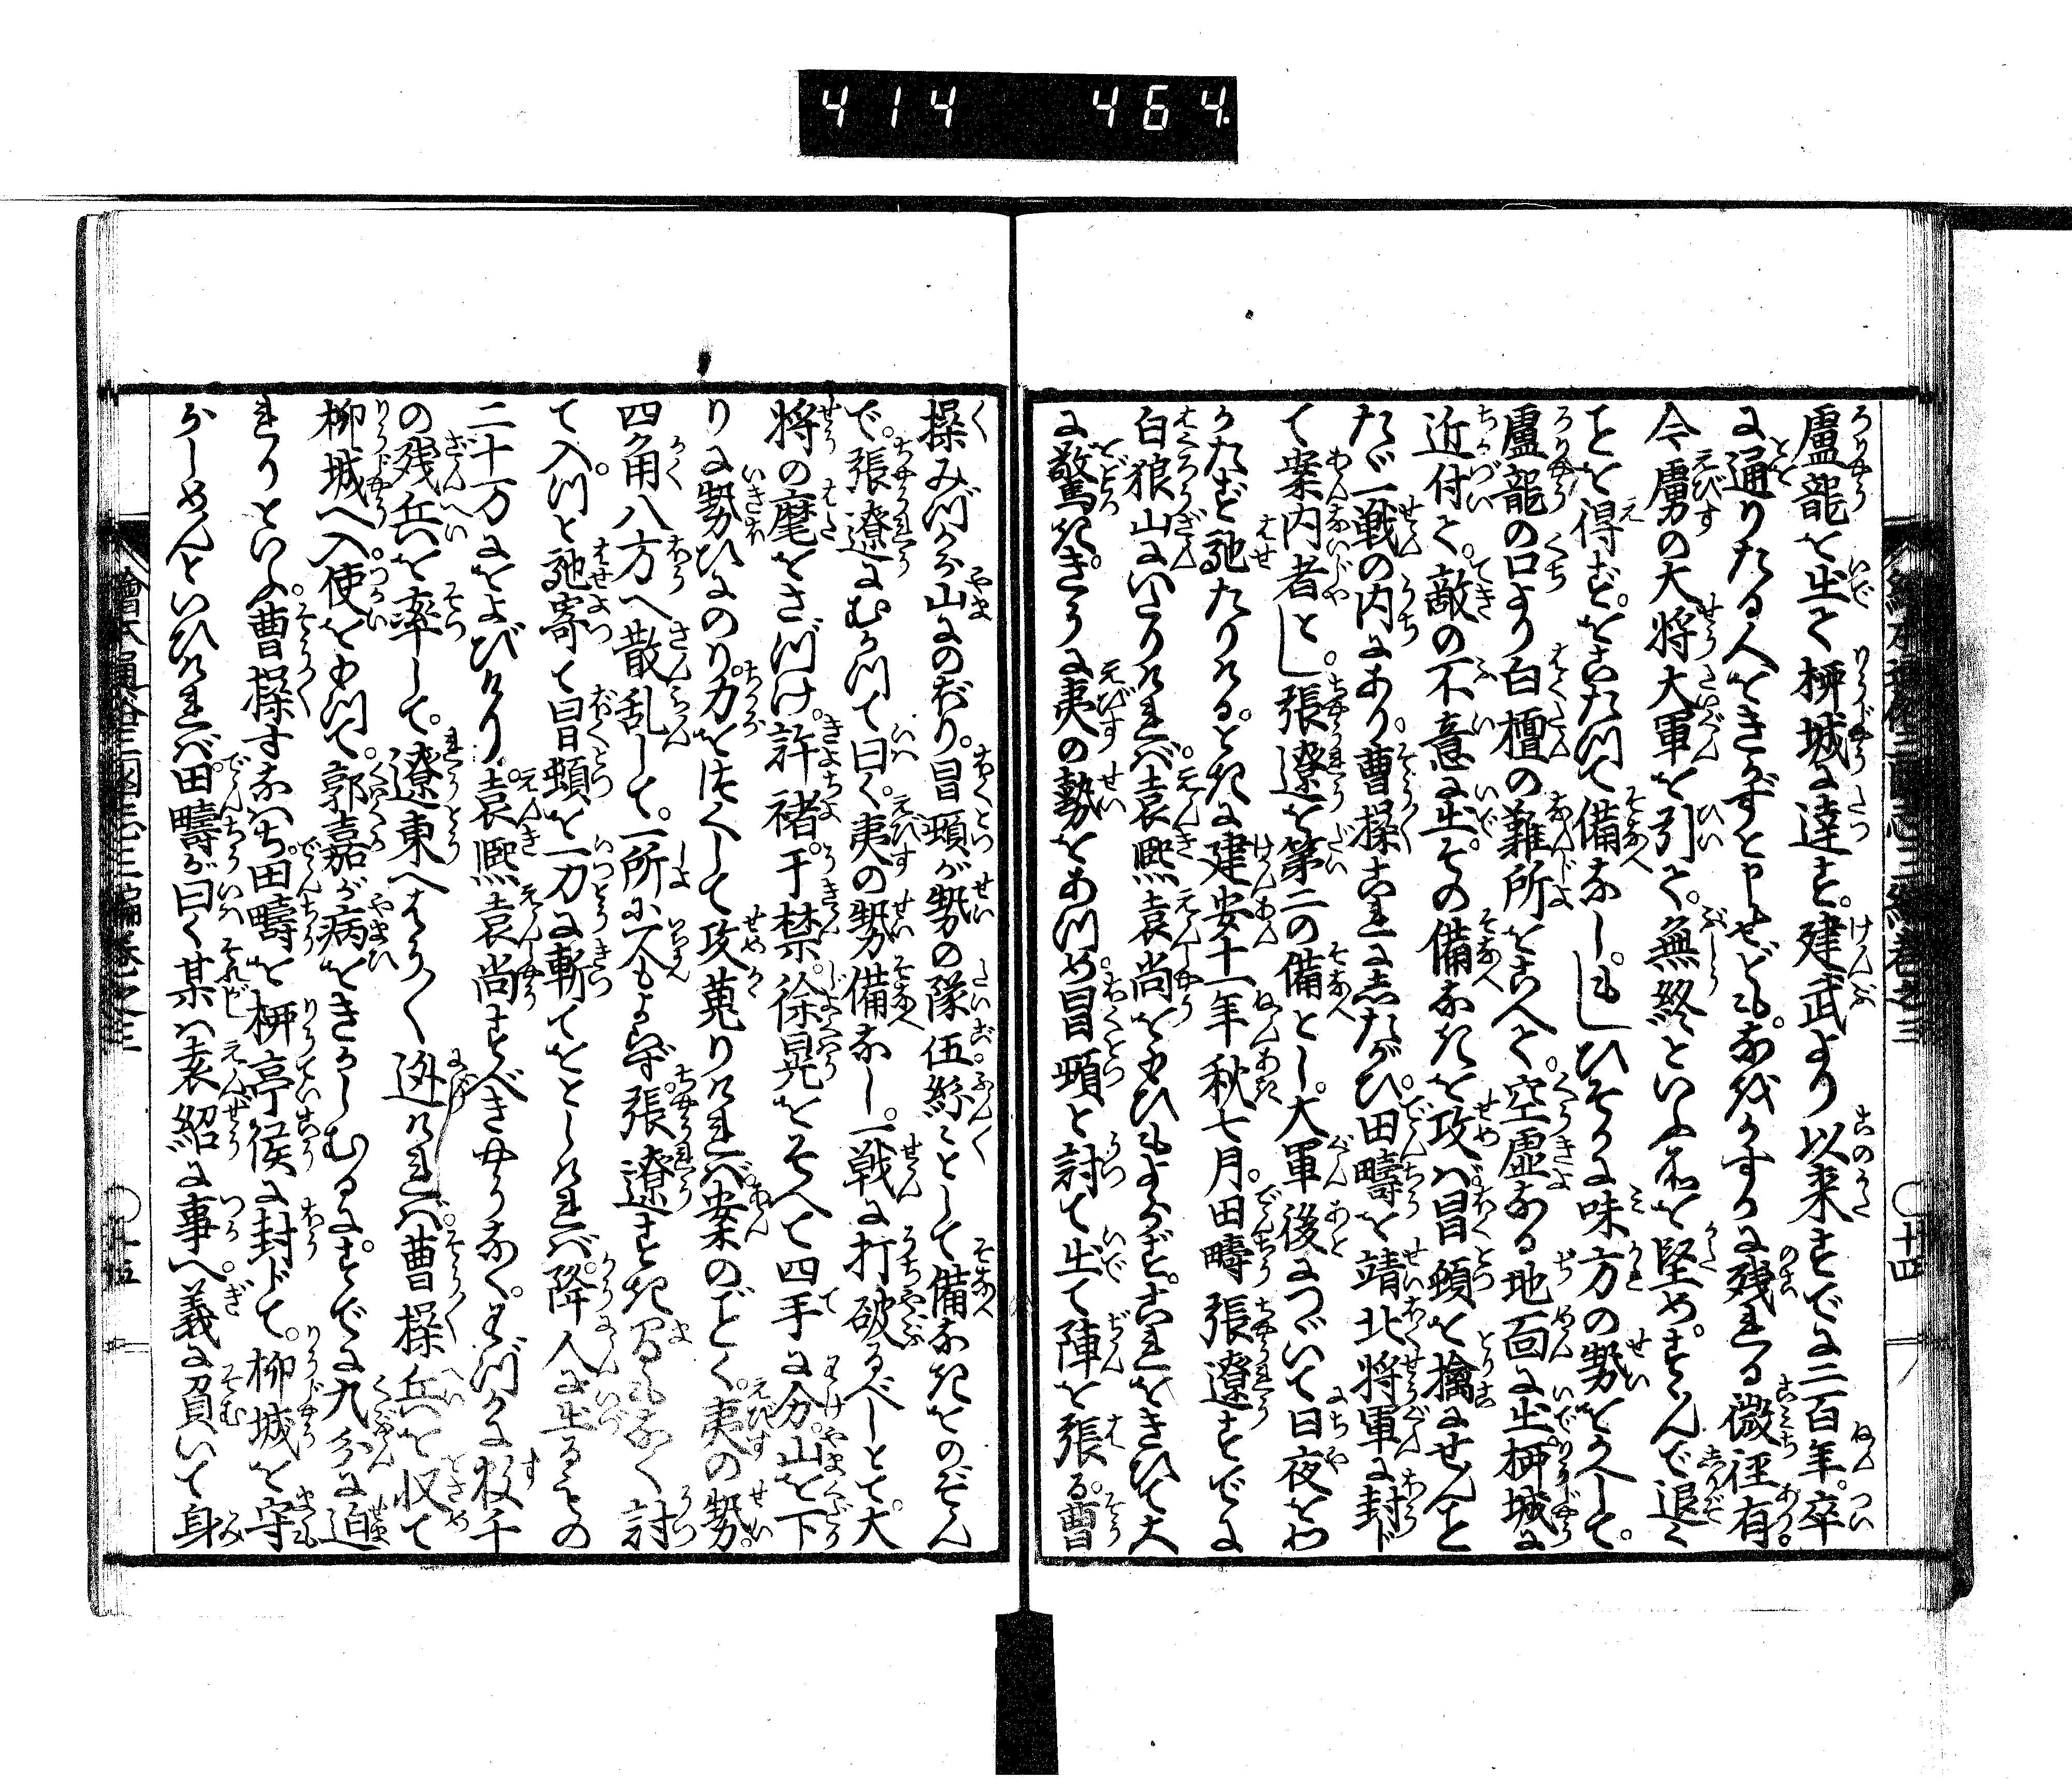 414 464
繪本通俗三國志三編卷之三 〇十四
盧龍を出て柳城に達す。建武より以来すでに二百年。卒
に通りたる人をきかずと申せども。なほかすかに残れる微徑有。
今虜の大将大軍を引て。無終といふ所を堅め。すゝんで退く
ことを得ず。をこたつて備なし。もしひそかに味方の勢をかへして。
盧龍の口より白檀の難所をこへて。空虚なる地面に出。柳城に
近付て。敵の不意に出。その備なきを攻ば冒頓を擒にせんこと
たゞ一戦の内にあり。曹操これにしたがひ。田疇を靖北将軍に封じ
て案内者とし。張遼を第二の備とし。大軍後につゞいて日夜をわ
かたず馳たりける。ときに建安十一年秋七月。田疇張遼すでに
白狼山にいたりければ。袁煕袁尚をゆひもよらず。これをきひて大
に驚き。きうに夷の勢をあつめ。冒頓と討て出て陣を張る。曹
操みづから山にのぼり。冒頓が勢の隊伍紛〻として備なきをのぞん
で。張遼にむかつて曰く。夷の勢備なし。一戦に打破るべしとて。大
将の麾をさづけ。許褚。于禁。徐晃をそへて四手に分。山を下
りに勢ひにのり。力をはくして攻蒐りければ。案のごとく。夷の勢。
四角八方へ散乱して。一所に一人もよらず。張遼すき間もなく討
て入。つと馳寄て冒頓を一刀に斬てをとしければ。降人に出るもの
二十万にをよびけり。袁煕袁尚すべきやうなく。わづかに数千
の残兵を率して。遼東へはるかく逃ければ。曹操兵を収て
柳城へ入。使をゆつて。郭嘉が病をきかしむるに。すでに九分に迫
れりといふ。曹操すなはち。田疇を柳亭侯に封じて。柳城を守
らしめんといひければ。田疇が曰く某は袁紹に事へ。義に負いて身
繪本通俗三國志三編卷之三 〇十五